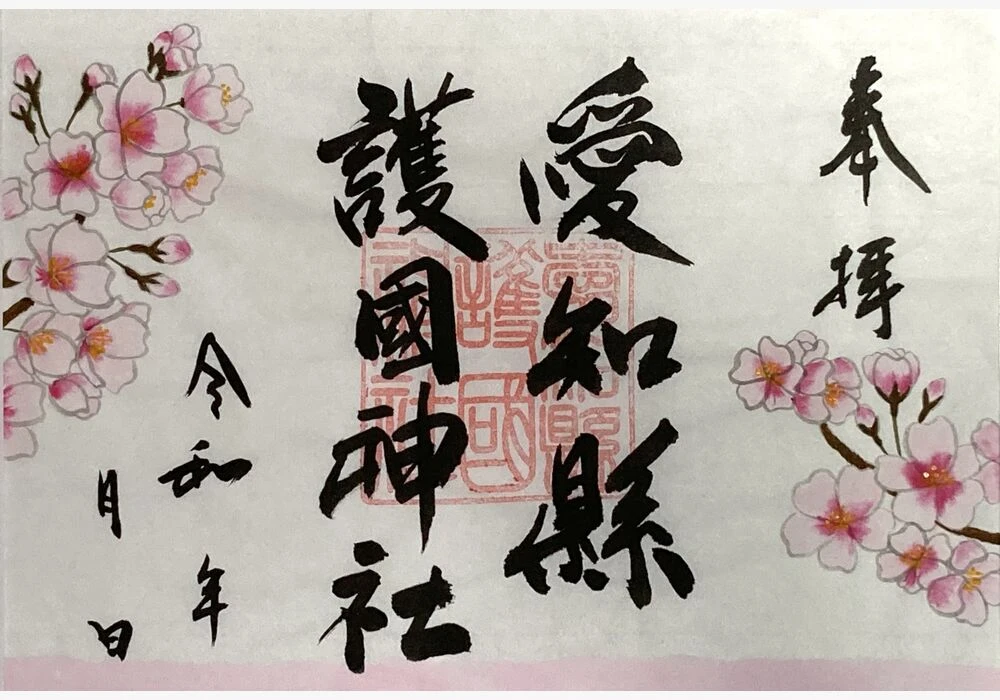 奉拝
愛知縣
護國神社
令和　年
月　日
愛知縣
護國
神社